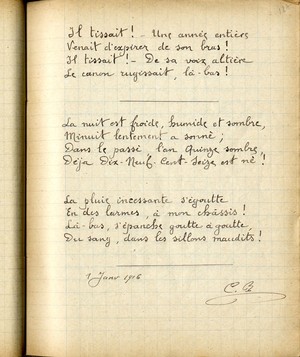 Il tissait ! – Une année entière
Venait d'expirer de son bras !
Il tissait ! – De sa voix altière
Le canon rugissait, là-bas !
La nuit est froide, humide et sombre,
Minuit lentement a sonné ;
Dans le passé l'an Quinze sombre,
Déjà Dix-Neuf-Cent-Seize est né !
La pluie incessante s'égoutte
En des larmes, à mon châssis !
Là-bas, s'épanche goutte à goutte,
Du sang, dans les sillons maudits !
1 Janv 1916